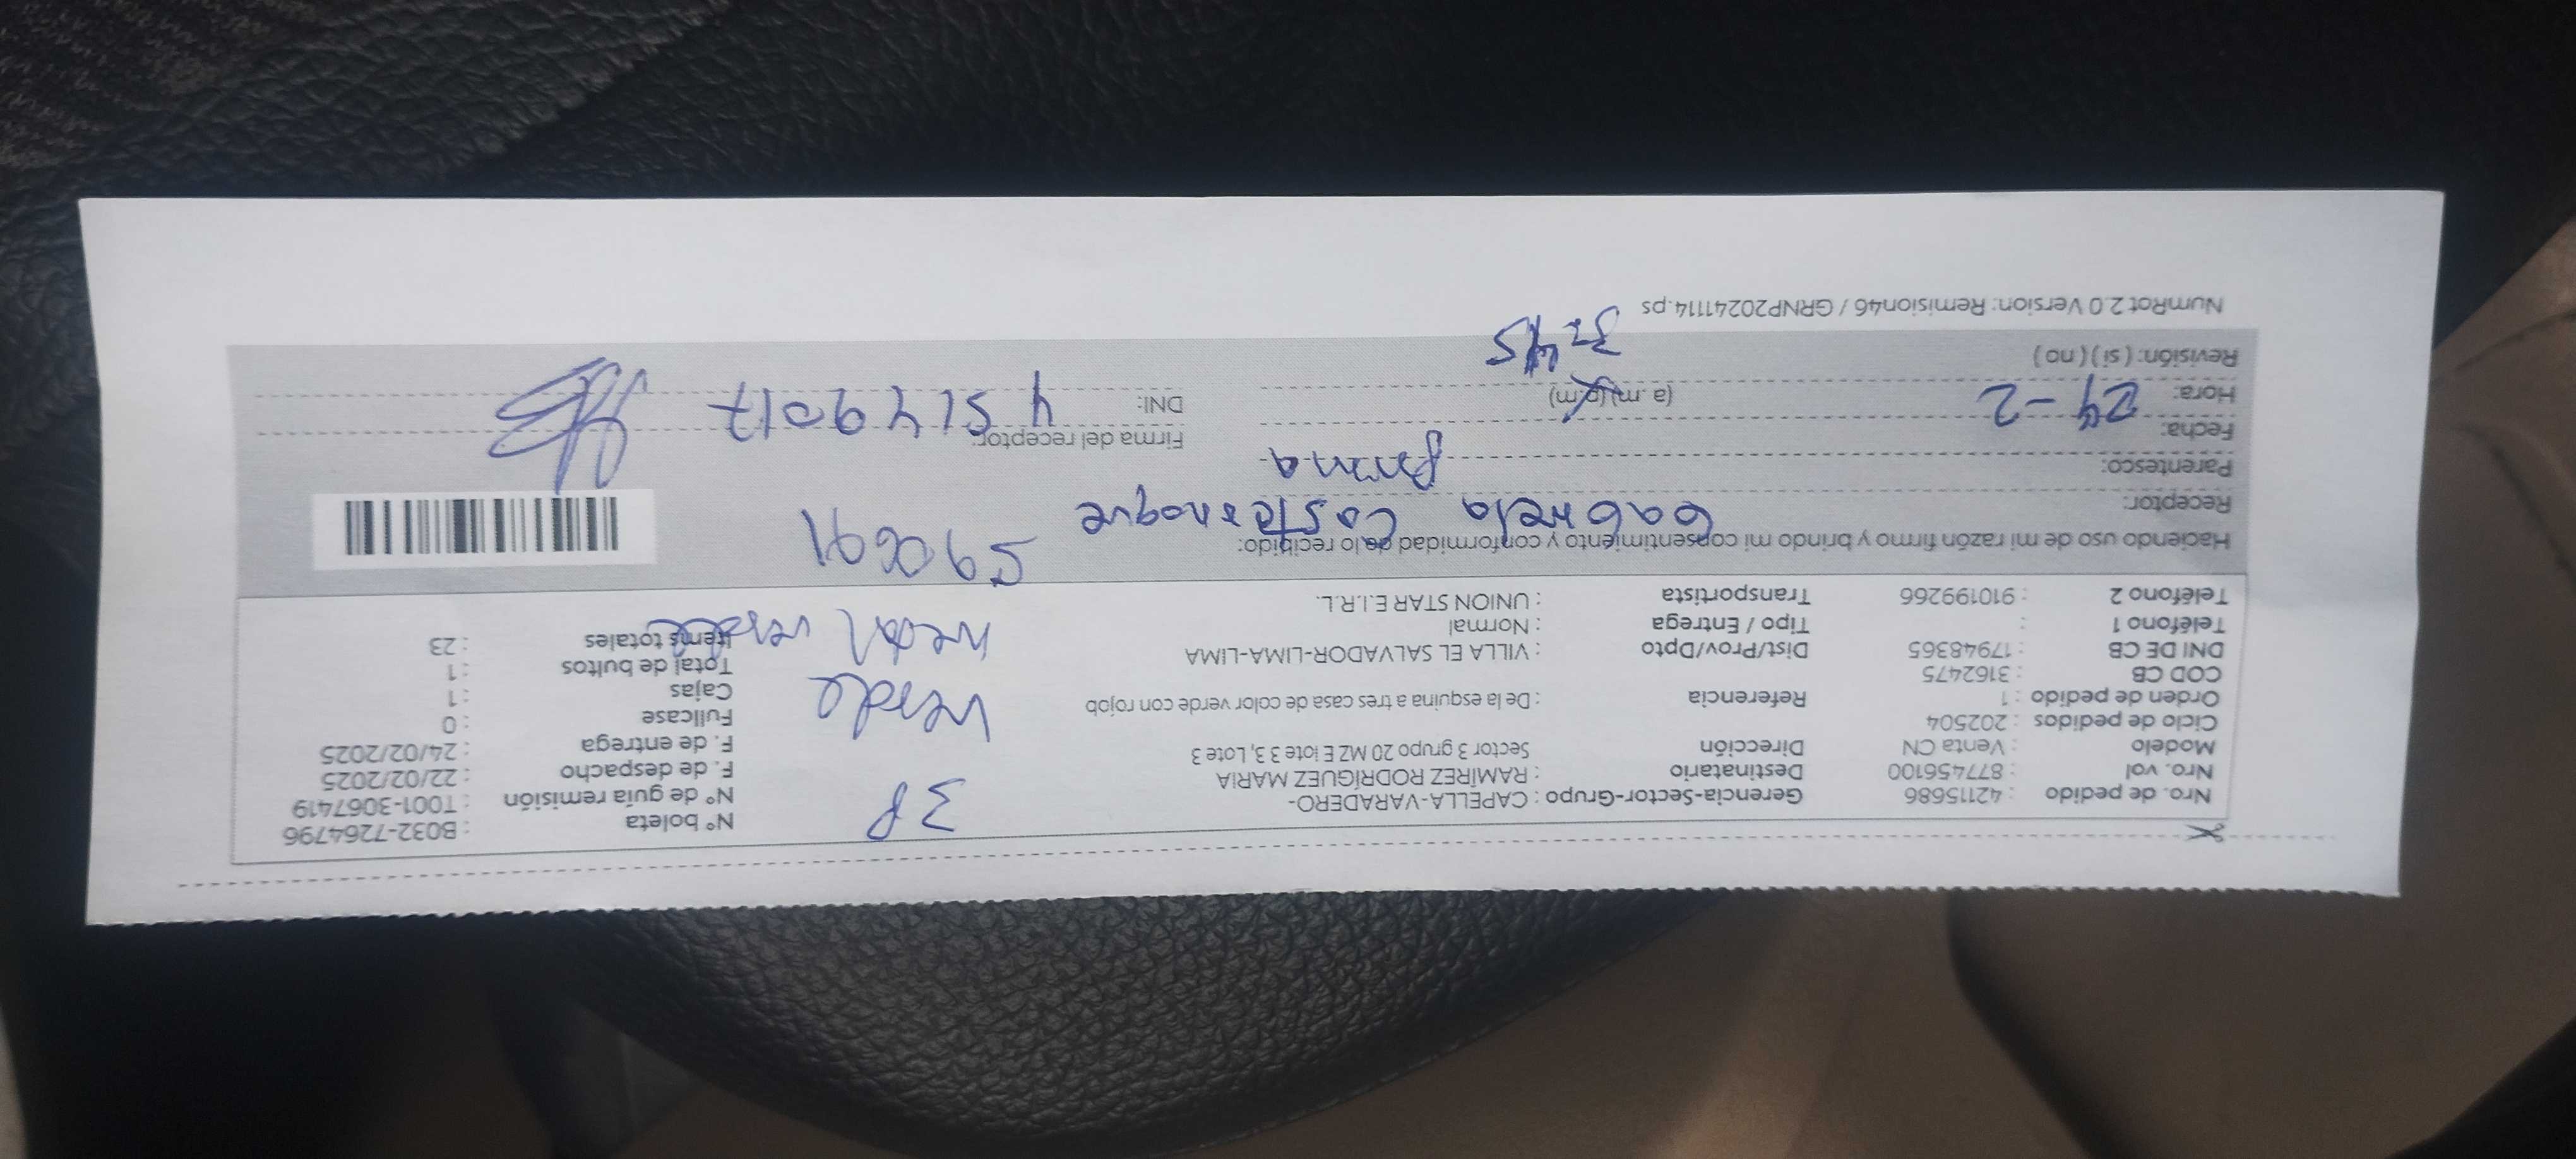 Nro. de pedido : 42115686
Nro. vol : 877456100
Modelo : Venta CN
Ciclo de pedidos : 202504
Orden de pedido : 1
COD CB : 3162475
DNI DE CB : 17948365
Teléfono 1 :
Teléfono 2 : 910199266
Gerencia-Sector-Grupo : CAPELLA-VARADERO-
Destinatario : RAMÍREZ RODRÍGUEZ MARIA
Dirección Sector 3 grupo 20 MZ E lote 3 3, Lote 3
Referencia : De la esquina a tres casa de color verde con rojob
Dist/Prov/Dpto : VILLA EL SALVADOR-LIMA-LIMA
Tipo / Entrega : Normal
Transportista : UNION STAR E.I.R.L.
3P
Verde
metal verde
590691
N° boleta : B032-7264796
N° de guía remisión : T001-3067419
F. de despacho : 22/02/2025
F. de entrega : 24/02/2025
Fullcase : 0
Cajas : 1
Total de bultos : 1
Items totales : 23
Haciendo uso de mi razón firmo y brindo mi consentimiento y conformidad de lo recibido:
Receptor: Gabriela
Parentesco: prima
Fecha: 24-2
Hora: (a.m)(p.m)
Revisión: ( si ) ( no )
Firma del receptor:
DNI: 45149017
NumRot 2.0 Version: Remision46 / GRNP20241114.ps